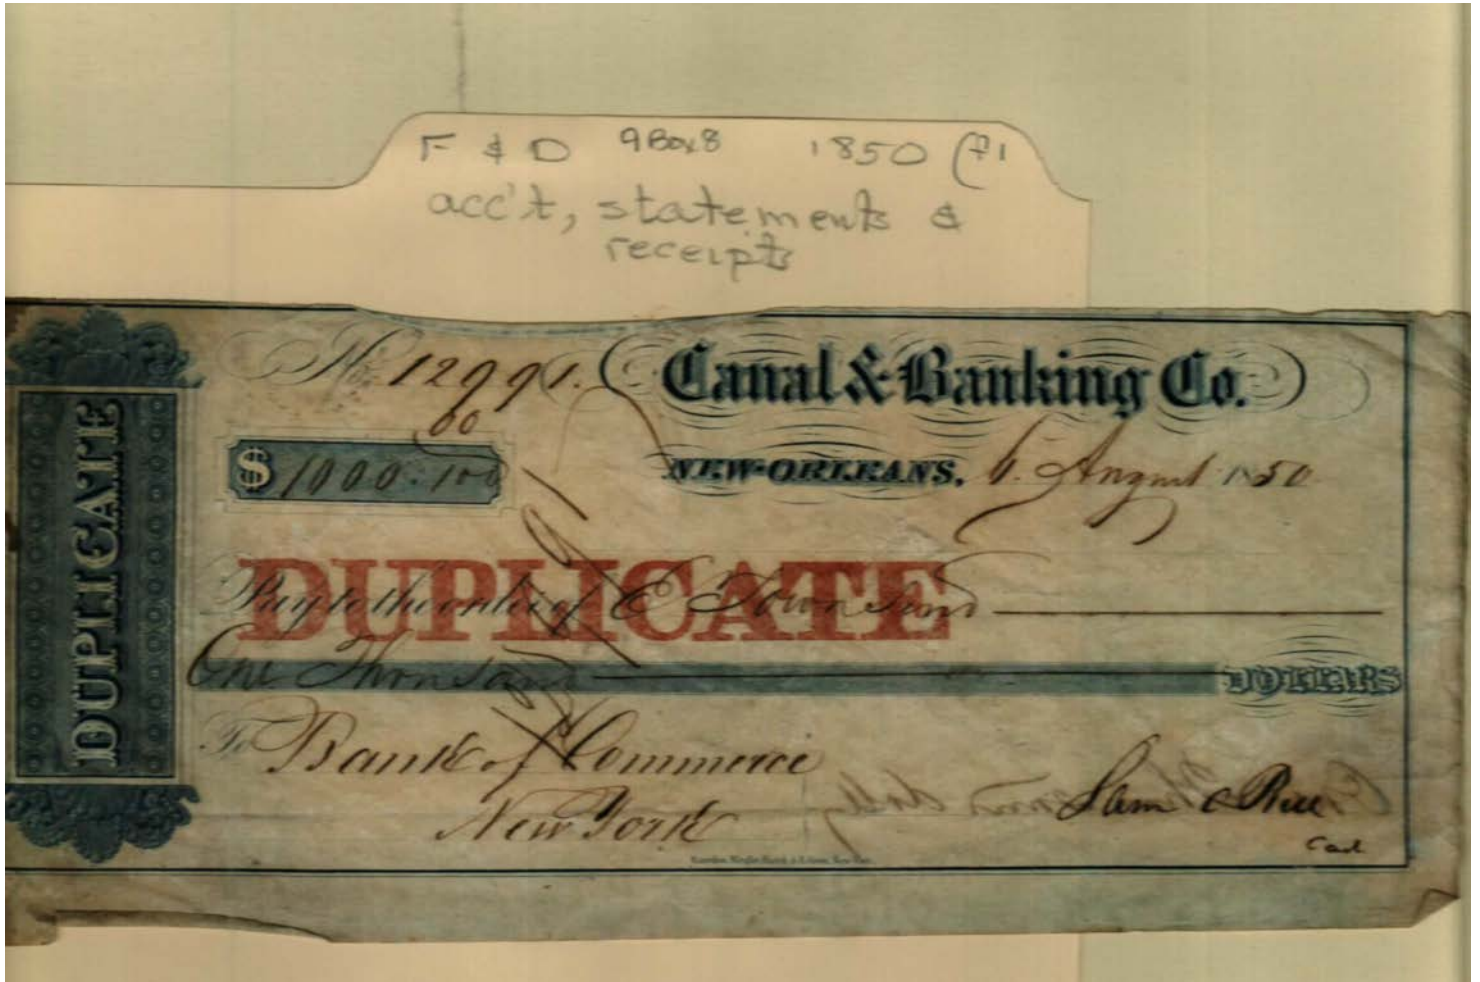 F & D 9Box8 1850 (f1
acc't, statements &
receipts
No. 12991. Canal & Banking Co.
$ 1000.00/100
NEW-ORLEANS, 6. August 1850
DUPLICATE
DUPLICATE
Pay to the order of E Townsend
One Thousand DOLLARS
To Bank of Commerce
New York
Sam C